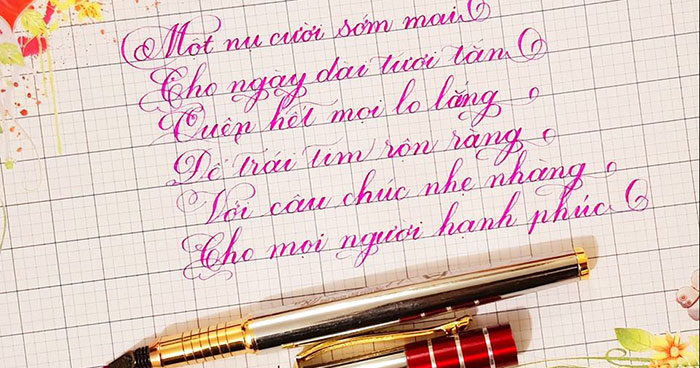 Một nụ cười sớm mai
Cho ngày dài tươi tắn
Quên hết mọi lo lắng
Để trái tim rộn ràng
Với câu chúc nhẹ nhàng
Cho mọi người hạnh phúc